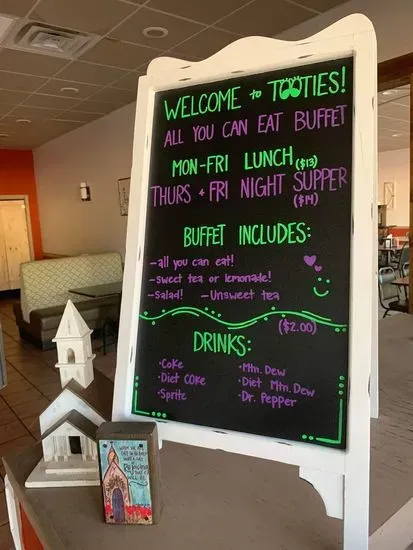 WELCOME to TOOTIES!
ALL YOU CAN EAT BUFFET
MON-FRI LUNCH ($13)
THURS + FRI NIGHT SUPPER
($14)
BUFFET INCLUDES:
-all you can eat!
-sweet tea or lemonade!
-Salad! -Unsweet tea
($2.00)
DRINKS:
·Coke
·Diet COKE
·Sprite
·Mtn. Dew
·Diet Mtn. Dew
·Dr. Pepper